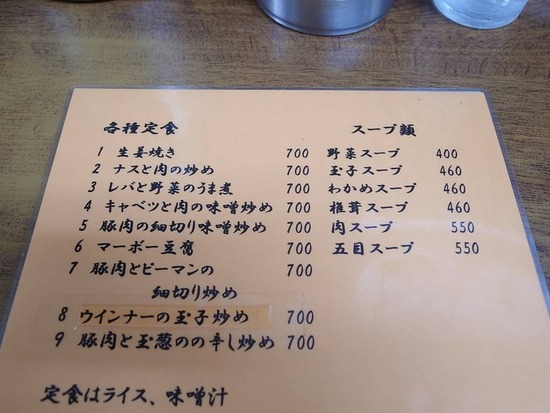 各種定食
1 生姜焼き 700
2 ナスと肉の炒め 700
3 レバと野菜のうま煮 700
4 キャベツと肉の味噌炒め 700
5 豚肉の細切り味噌炒め 700
6 マーボー豆腐 700
7 豚肉とピーマンの 700
細切り炒め
8 ウインナーの玉子炒め 700
9 豚肉と玉葱のの辛し炒め 700
定食はライス、味噌汁
スープ類
野菜スープ 400
玉子スープ 460
わかめスープ 460
椎茸スープ 460
肉スープ 550
五目スープ 550